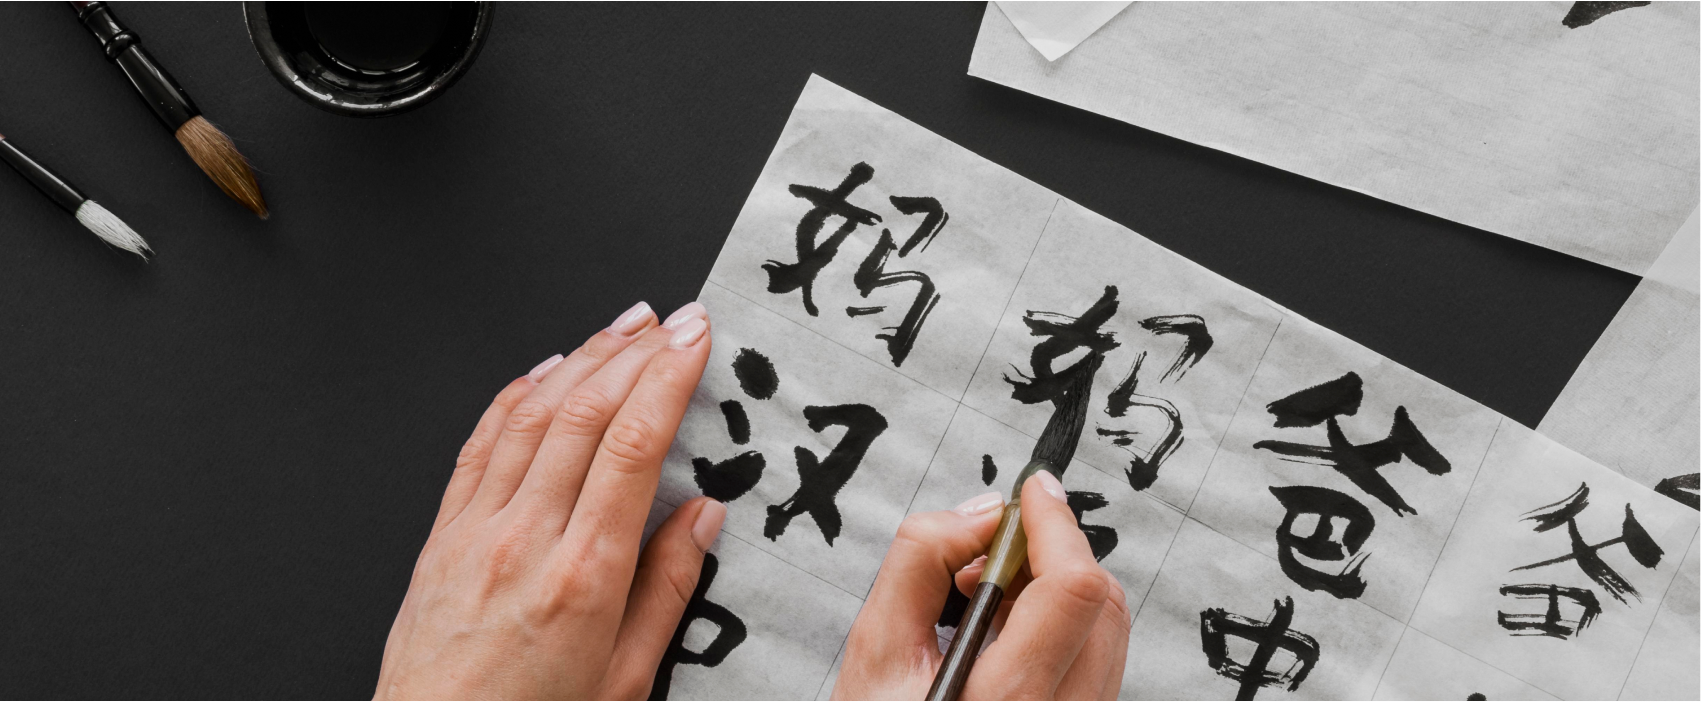 妈妈爸爸
汉 中